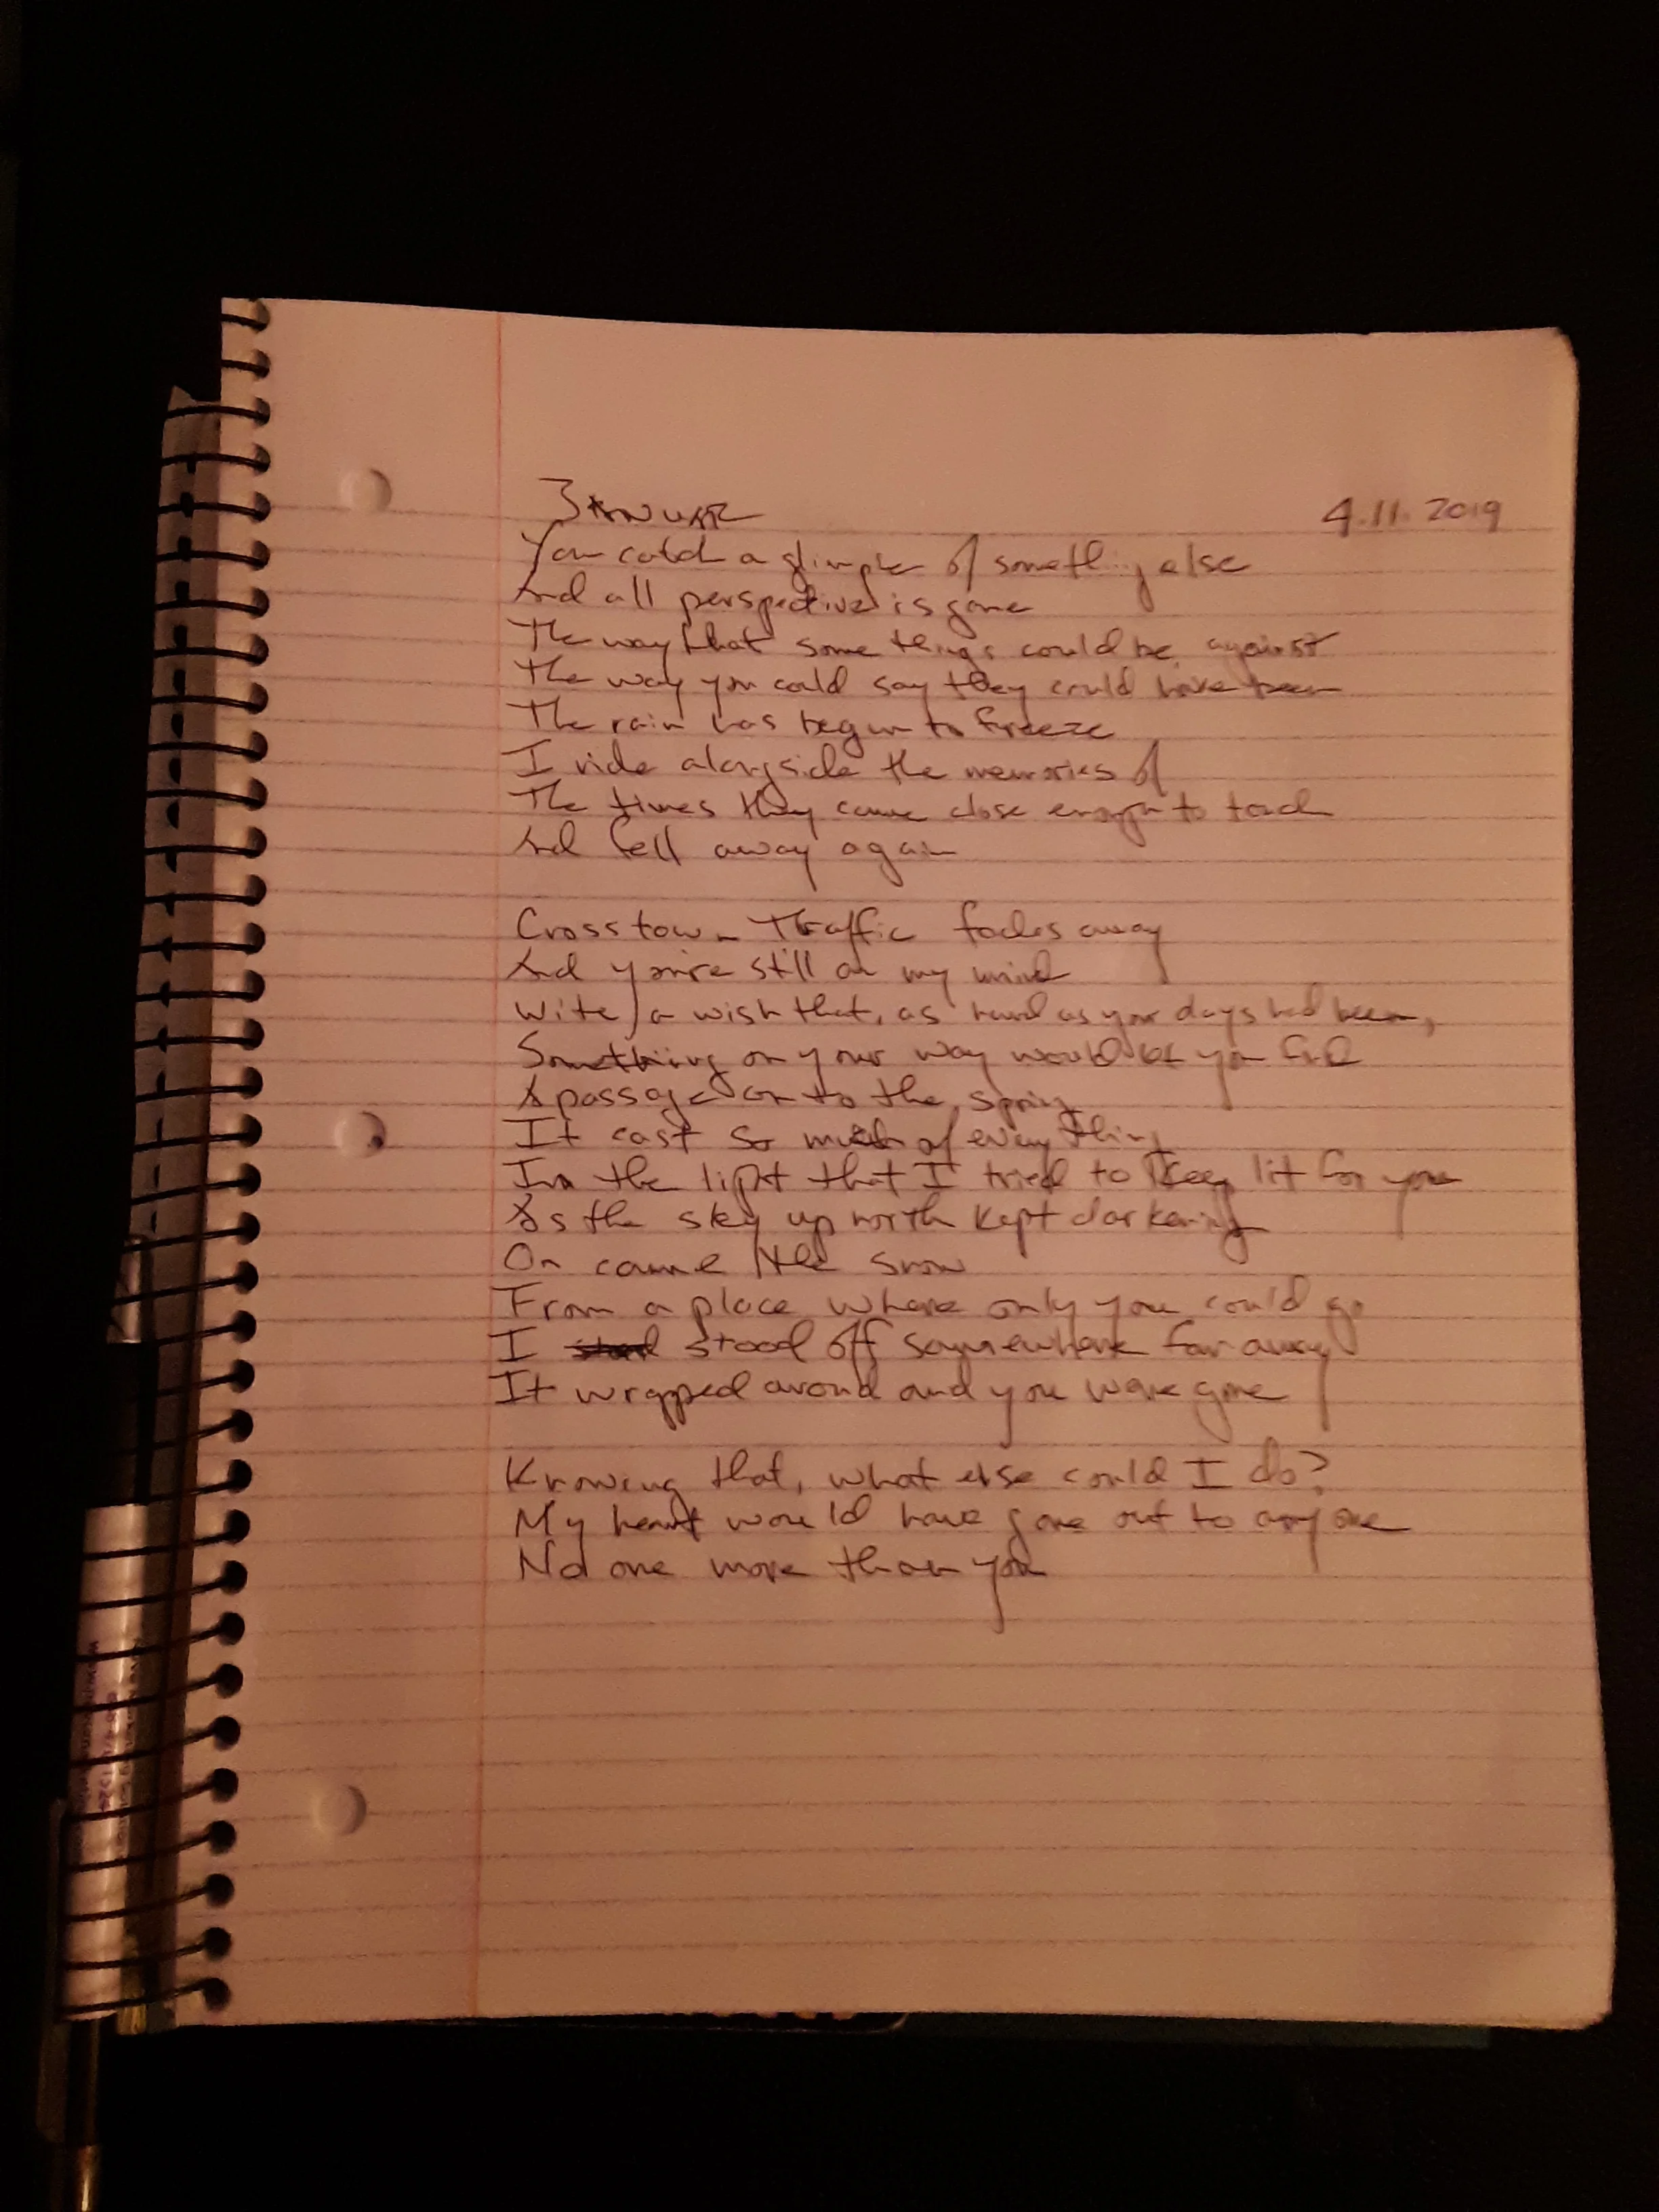 4.11.2019
You catch a glimpse of something else
And all perspective is gone
The way that some things could be against
The way you could say they could have been
The rain has begun to freeze
I ride alongside the memories of
The times they came close enough to touch
And fell away again
Crosstown Traffic fades away
And you're still on my mind
With a wish that, as hard as your days had been,
Something on your way would let you find
A passage on to the spring
It cast so much of everything
In the light that I tried to keep lit for you
As the sky up north kept darkening
On came the snow
From a place where only you could go
I stood off somewhere far away
It wrapped around and you were gone
Knowing that, what else could I do?
My heart would have gone out to anyone
No one more than you